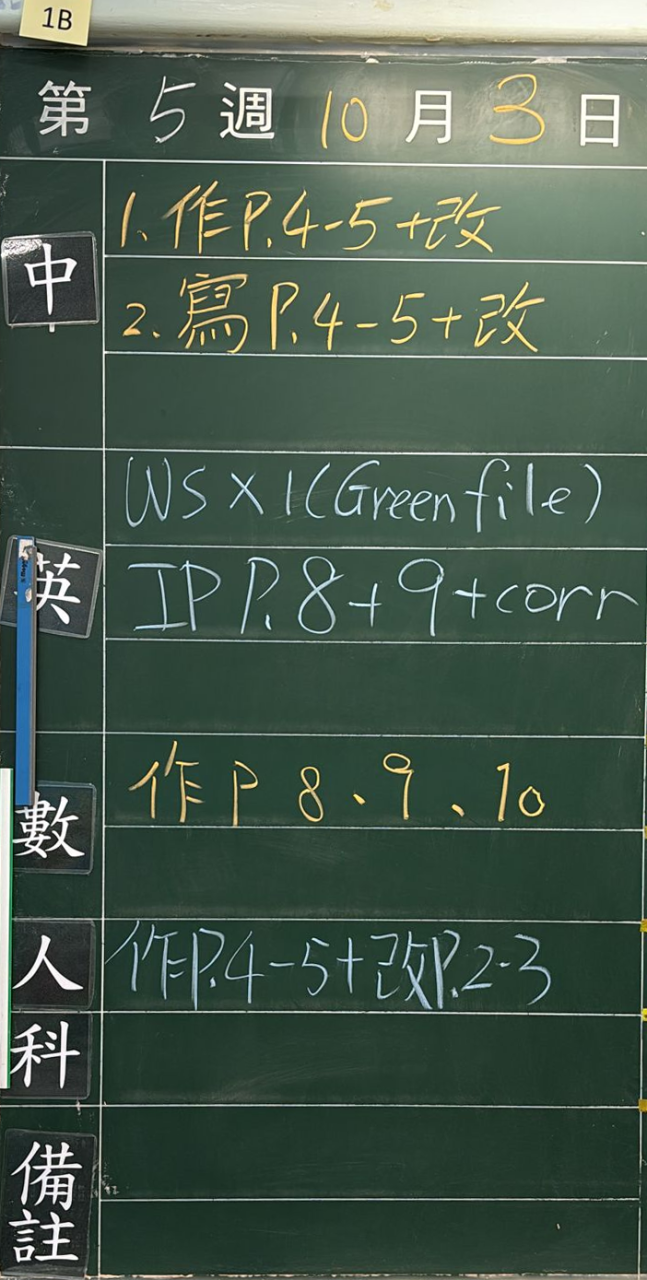 1B
第 5 週 10 月 3 日
中
1. 作P.4-5+改
2. 寫P.4-5+改
英
WS×1(Green file)
IP P.8+9+corr
數
作P 8、9、10
人
作P.4-5+改P.2-3
科
備註